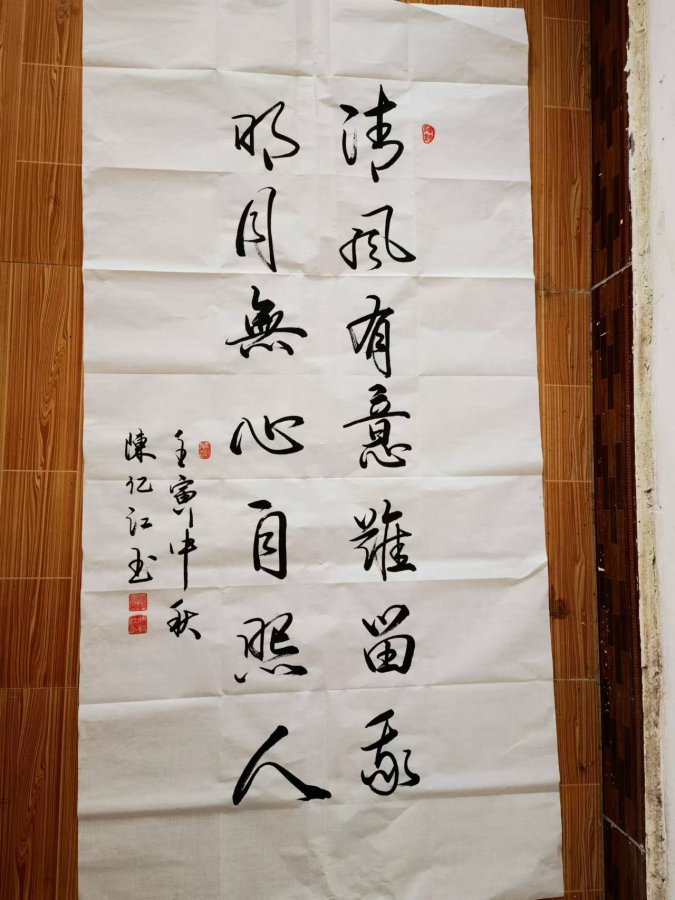 清風有意難留我
明月無心自照人
壬寅中秋
陳亿江